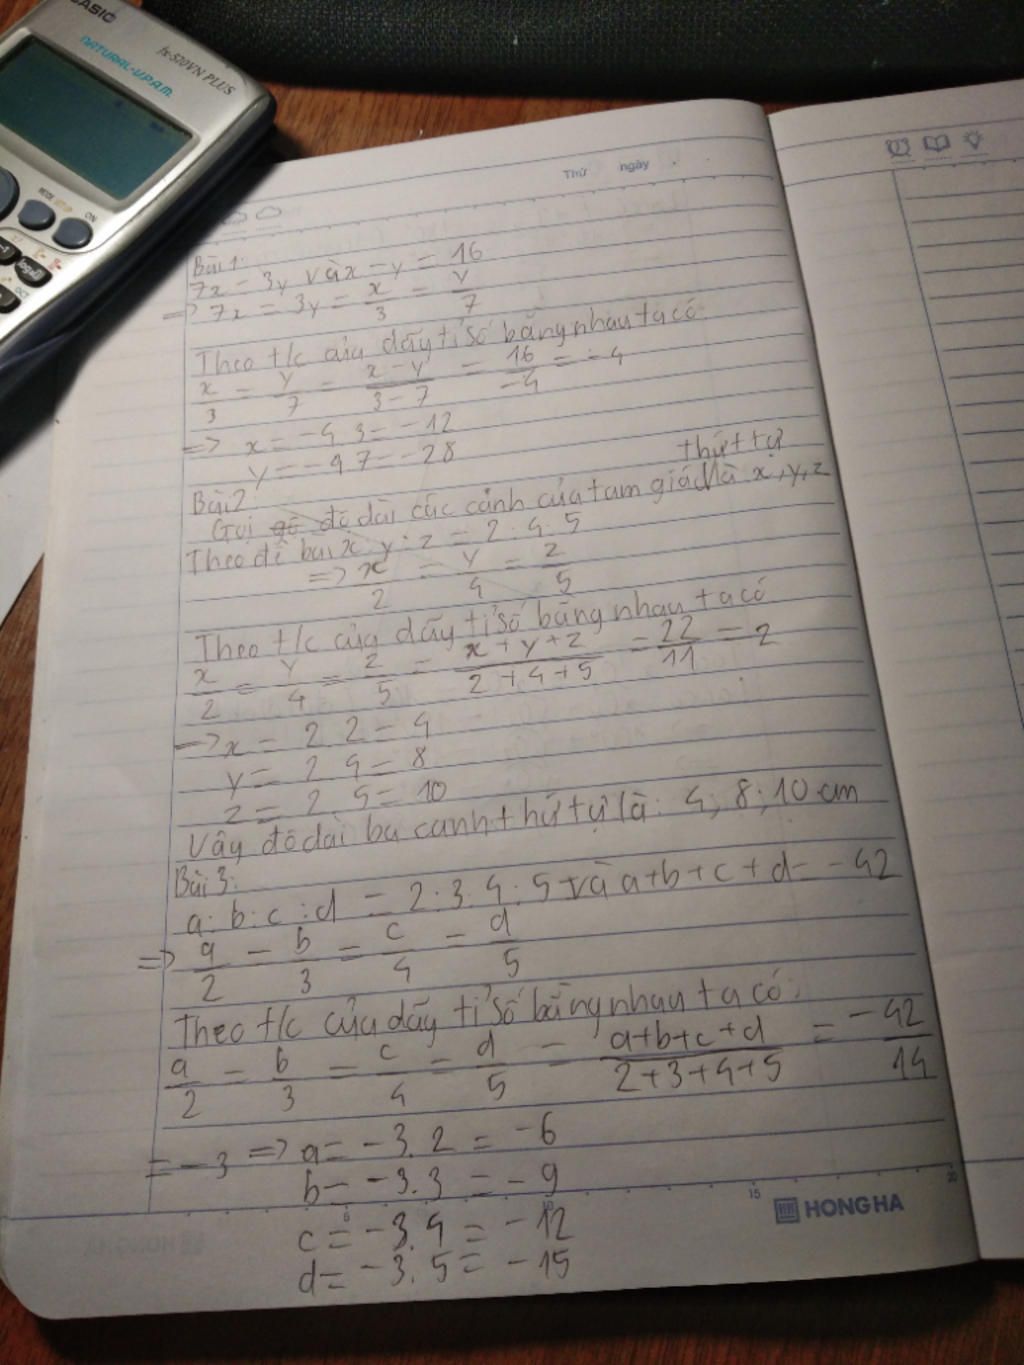 CASIO
fx-570VN PLUS
NATURAL-V.P.A.M.
MODE SETUP
ON
Thứ ngày
Bài 1:
7x = 3y và x - y = 16
=> 7x = 3y = x/3 = y/7
Theo t/c của dãy tỉ số bằng nhau ta có
x/3 = y/7 = x - y/3 - 7 = 16/-4 = -4
=> x = -4 3 = -12
y = -4 7 = -28
Bài 2
thứ tự
Gọi độ dài các cảnh của tam giác là x, y, z
Theo đề bài x y : z = 2 : 4 : 5
=> x/2 = y/4 = z/5
Theo t/c của dãy tỉ số bằng nhau ta có
x/2 = y/4 = z/5 = x + y + z/2 + 4 + 5 = 22/11 = 2
=> x = 2 2 = 4
y = 2 4 = 8
z = 2 5 = 10
Vậy độ dài ba canh thứ tự là: 4; 8; 10 cm
Bài 3:
a : b : c : d = 2 : 3 : 4 : 5 và a + b + c + d = -42
=> a/2 = b/3 = c/4 = d/5
Theo t/c của dãy tỉ số bằng nhau ta có:
a/2 = b/3 = c/4 = d/5 = a+b+c+d/2+3+4+5 = -42/14
= -3 => a = -3.2 = -6
b = -3.3 = -9
c = -3.4 = -12
d = -3.5 = -15
5 10 15 20
HONG HA